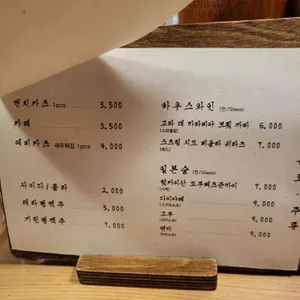 멘치카츠 1pcs 3,500
카레 3,500
에비카츠 새우튀김 1pcs 4,000
사이다/콜라 2,000
테라병맥주 5,000
기린병맥주 7,000
하우스와인 (잔/Glass)
고라 데 마라비아 브뤼 까바 6,000
(스파클링)
스트림 시드 비욜라 쉬라즈 7,000
(레드)
일본술 (잔/Glass)
핫카이산 토쿠베츠준마이 7,000
(사케)
다이야메 9,000
고쿠 9,000
텐마 9,000
주
류